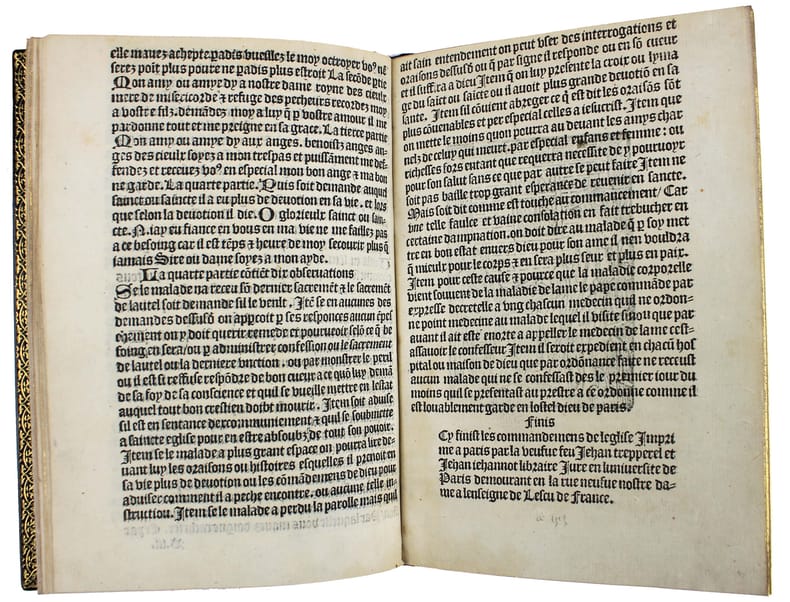 elle mauez achepte.padis vueillez le moy octroyer voꝰ ne
serez poīt plus poure ne padis plus estroit La secōde ptie
Mon amy ou amye dy a nostre dame royne des cieulx
mere de misericorde & refuge des pecheurs recordez moy
a vostre filz. demādez moy a luy q̄ p vostre amour il me
pardonne tout et me preigne en sa grace. La tierce partie
Mon amy ou amye dy aux anges. benoistz anges an-
ges des cieulx soyez a mon trespas et puissāment me def-
fendez et recevez voꝰ en especial mon bon ange & ma bon
ne garde. La quarte partie. Puis soit demande auquel
sainct ou saincte il a eu plus de deuotion en sa vie. et lors
que selon la deuotion il die. O glorieulx sainct ou sain-
cte. N. iay eu fiance en vous en ma vie ne me faillez pas
a ce besoing car il est tēps & heure de moy secourir plus q̄
iamais Sire ou dame soyez a mon ayde.
La quarte partie cōtiēt dix obseruations
Se le malade na receu sō dernier sacremēt & le sacremēt
de lautel soit demande sil le veult. Itē se en aucunes des
demandes dessusd̄ on appcoit p ses responces aucun ēpes
chement on y doit querir remede et pourueoir selō ce q̄ be
soing en sera/ou p administrer confession ou le sacrement
de lautel ou la derniere vnction. ou par monstrer le peril
ou il est si reffuse respōdre de bon cueur a ce quō luy demā
de sa foy de sa conscience et quil se vueille mettre en lestat
auquel tout bon crestien doibt mourir. Item soit aduise
sil est en sentance dexcommuniement & quil se soubmette
a saincte eglise pour en estre absoubz de tout son pouoir.
Item se le malade a plus grant espace on pourra lire de-
uant luy les oraisons ou histoires esquelles il prenoit en
sa vie plus de deuotion ou les cōmādemens de dieu pour
aduiser comment il a peche encontre. ou aucune telle in-
struction. Item se le malade a perdu la parolle mais quil
ait sain entendement on peut vser des interrogations et
oraisons dessusd̄ ou q̄ par signe il responde ou en sō cueur
et il suffira a dieu Item q̄ on luy presente la croix ou lyma
ge du saīct ou saīcte ou il auoit plus grande deuotiō en sa
sante. Item sil cōuient abreger ce q̄ est dit les oraisōs sōt
plus cōuenables et par especial celles a iesucrist. Item que
on mette le moins quon pourra au deuant les amys char
nelz de celuy qui meurt.par especial enfans et femme : ou
richesses fors entant que requerra necessite de y pouruoyr
pour son salut sans ce que par autre se peut faire Item ne
soit pas baille trop grant esperance de reuenir en sancte.
Mais soit dit comme est touche au commancement/Car
vne telle faulce et vaine consolation en fait trebucher en
certaine dampnation. on doit dire au malade q̄ p soy met
tre en bon estat enuers dieu pour son ame il nen vouldra
q̄ mieulx pour le corps & en sera plus seur et plus en paix.
Item pour ceste cause & pource que la maladie corporelle
vient souuent de la maladie de lame le pape commāde par
expresse decretelle a vng chascun medecin quil ne ordon-
ne point medecine au malade lequel il visite sinon que par
auant il ait este enorte a appeller le medecin de lame cest-
assauoir le confesseur Item il seroit expedient en chacū hos
pital ou maison de dieu que par ordōnance faite ne receust
aucun malade qui ne se confessast des le premier iour du
moins quil se presentast au prestre a ce ordonne comme il
est louablement garde en lostel dieu de paris.
Finis
Cy finist les commandemens de leglise Impri
me a paris par la veufue feu Jehan trepperel et
Jehan iehannot libraire Jure en luniuersite de
Paris demourant en la rue neufue nostre da-
me a lenseigne de Lescu de France.